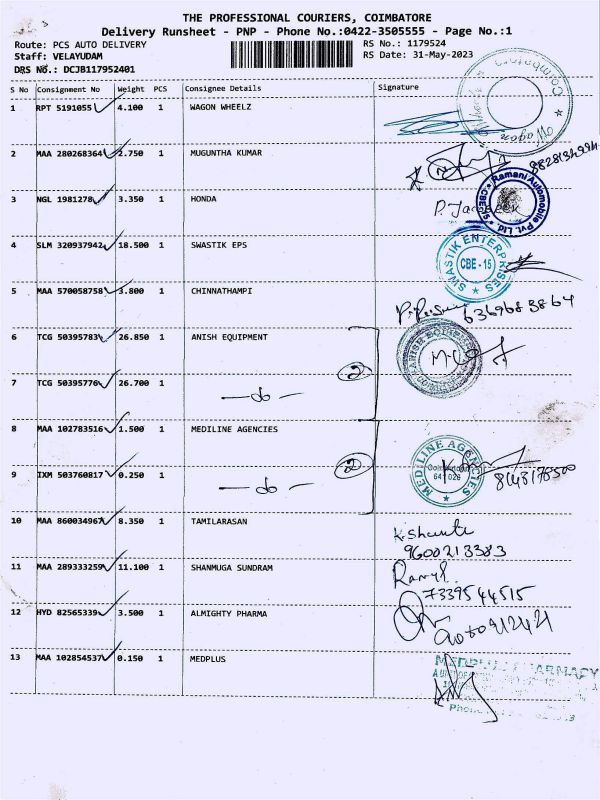 THE PROFESSIONAL COURIERS, COIMBATORE
Delivery Runsheet - PNP - Phone No.:0422-3505555 - Page No.:1
Route: PCS AUTO DELIVERY RS No.: 1179524
Staff: VELAYUDAM RS Date: 31-May-2023
DRS No.: DCJB117952401
S No Consignment No Weight PCS Consignee Details Signature
1 RPT 5191055 4.100 1 WAGON WHEELZ
2 MAA 280268364 2.750 1 MUGUNTHA KUMAR
3 NGL 1981278 3.350 1 HONDA
Ramani Automobile Pvt. Ltd.
4 SLM 320937942 18.500 1 SWASTIK EPS
SWASTIK ENTERPRISES
CBE - 15
5 MAA 570058758 3.800 1 CHINNATHAMPI
6369683864
6 TCG 50395783 26.850 1 ANISH EQUIPMENT
7 TCG 50395776 26.700 1 — do — 2
8 MAA 102783516 1.500 1 MEDILINE AGENCIES
MEDILINE AGENCIES
641 028
9 IXM 503760817 0.250 1 — do — 2
10 MAA 86003496 8.350 1 TAMILARASAN
9600213383
11 MAA 289333259 11.100 1 SHANMUGA SUNDRAM
7339544515
12 HYD 82565339 3.500 1 ALMIGHTY PHARMA
13 MAA 102854537 0.150 1 MEDPLUS
MEDPLUS PHARMACY